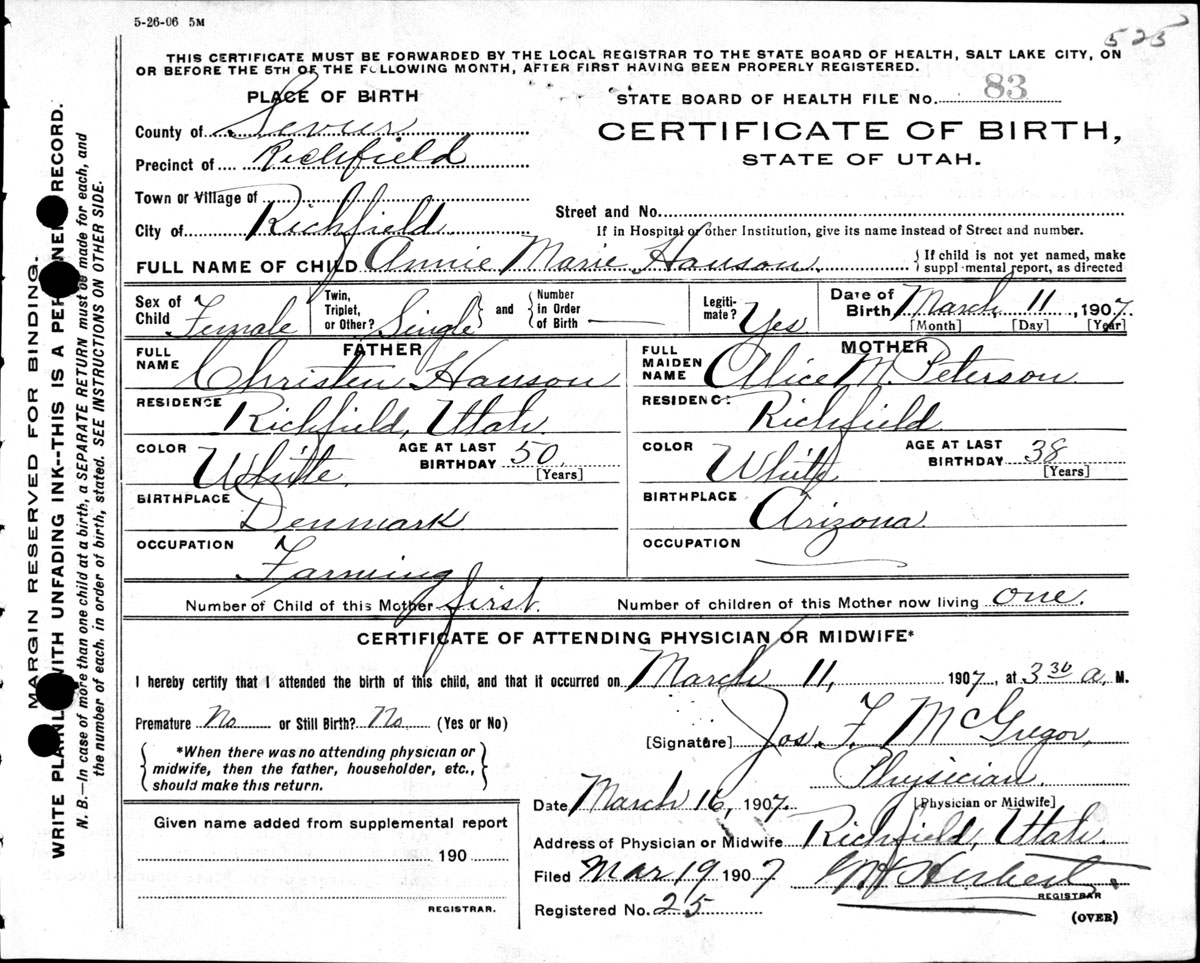 5-26-06 5M
525
THIS CERTIFICATE MUST BE FORWARDED BY THE LOCAL REGISTRAR TO THE STATE BOARD OF HEALTH, SALT LAKE CITY, ON
OR BEFORE THE 5TH OF THE FOLLOWING MONTH, AFTER FIRST HAVING BEEN PROPERLY REGISTERED.
PLACE OF BIRTH
STATE BOARD OF HEALTH FILE No. 83
County of Sevier
CERTIFICATE OF BIRTH,
Precinct of Richfield
STATE OF UTAH.
Town or Village of
Street and No.
City of Richfield
If in Hospital or other Institution, give its name instead of Street and number.
FULL NAME OF CHILD Annie Marie Hanson
If child is not yet named, make
supplemental report, as directed
Sex of Child Female
Twin, Triplet, or Other? Single
and
Number in Order of Birth —
Legiti-mate? Yes
Date of Birth March 11, 1907
[Month] [Day] [Year]
FATHER
FULL NAME Christen Hanson
RESIDENCE Richfield, Utah
COLOR White
AGE AT LAST BIRTHDAY 50
[Years]
BIRTHPLACE Denmark
OCCUPATION Farming
MOTHER
FULL MAIDEN NAME Alice M. Peterson
RESIDENC: Richfield
COLOR White
AGE AT LAST BIRTHDAY 38
[Years]
BIRTHPLACE Arizona
OCCUPATION
Number of Child of this Mother first. Number of children of this Mother now living one.
CERTIFICATE OF ATTENDING PHYSICIAN OR MIDWIFE*
I hereby certify that I attended the birth of this child, and that it occurred on March 11, 1907, at 3 30 a. M.
Premature No or Still Birth? No. (Yes or No)
[Signature] Jos. F. McGregor,
*When there was no attending physician or
midwife, then the father, householder, etc.,
should make this return.
Physician.
[Physician or Midwife]
Date March 16, 1907.
Given name added from supplemental report
190
REGISTRAR.
Address of Physician or Midwife Richfield, Utah.
Filed Mar 19 1907 Herbert
REGISTRAR
Registered No. 25
(OVER)
MARGIN RESERVED FOR BINDING.
WRITE PLAINLY WITH UNFADING INK--THIS IS A PERMANENT RECORD.
N. B.—In case of more than one child at a birth, a SEPARATE RETURN must be made for each, and
the number of each, in order of birth, stated. SEE INSTRUCTIONS ON OTHER SIDE.